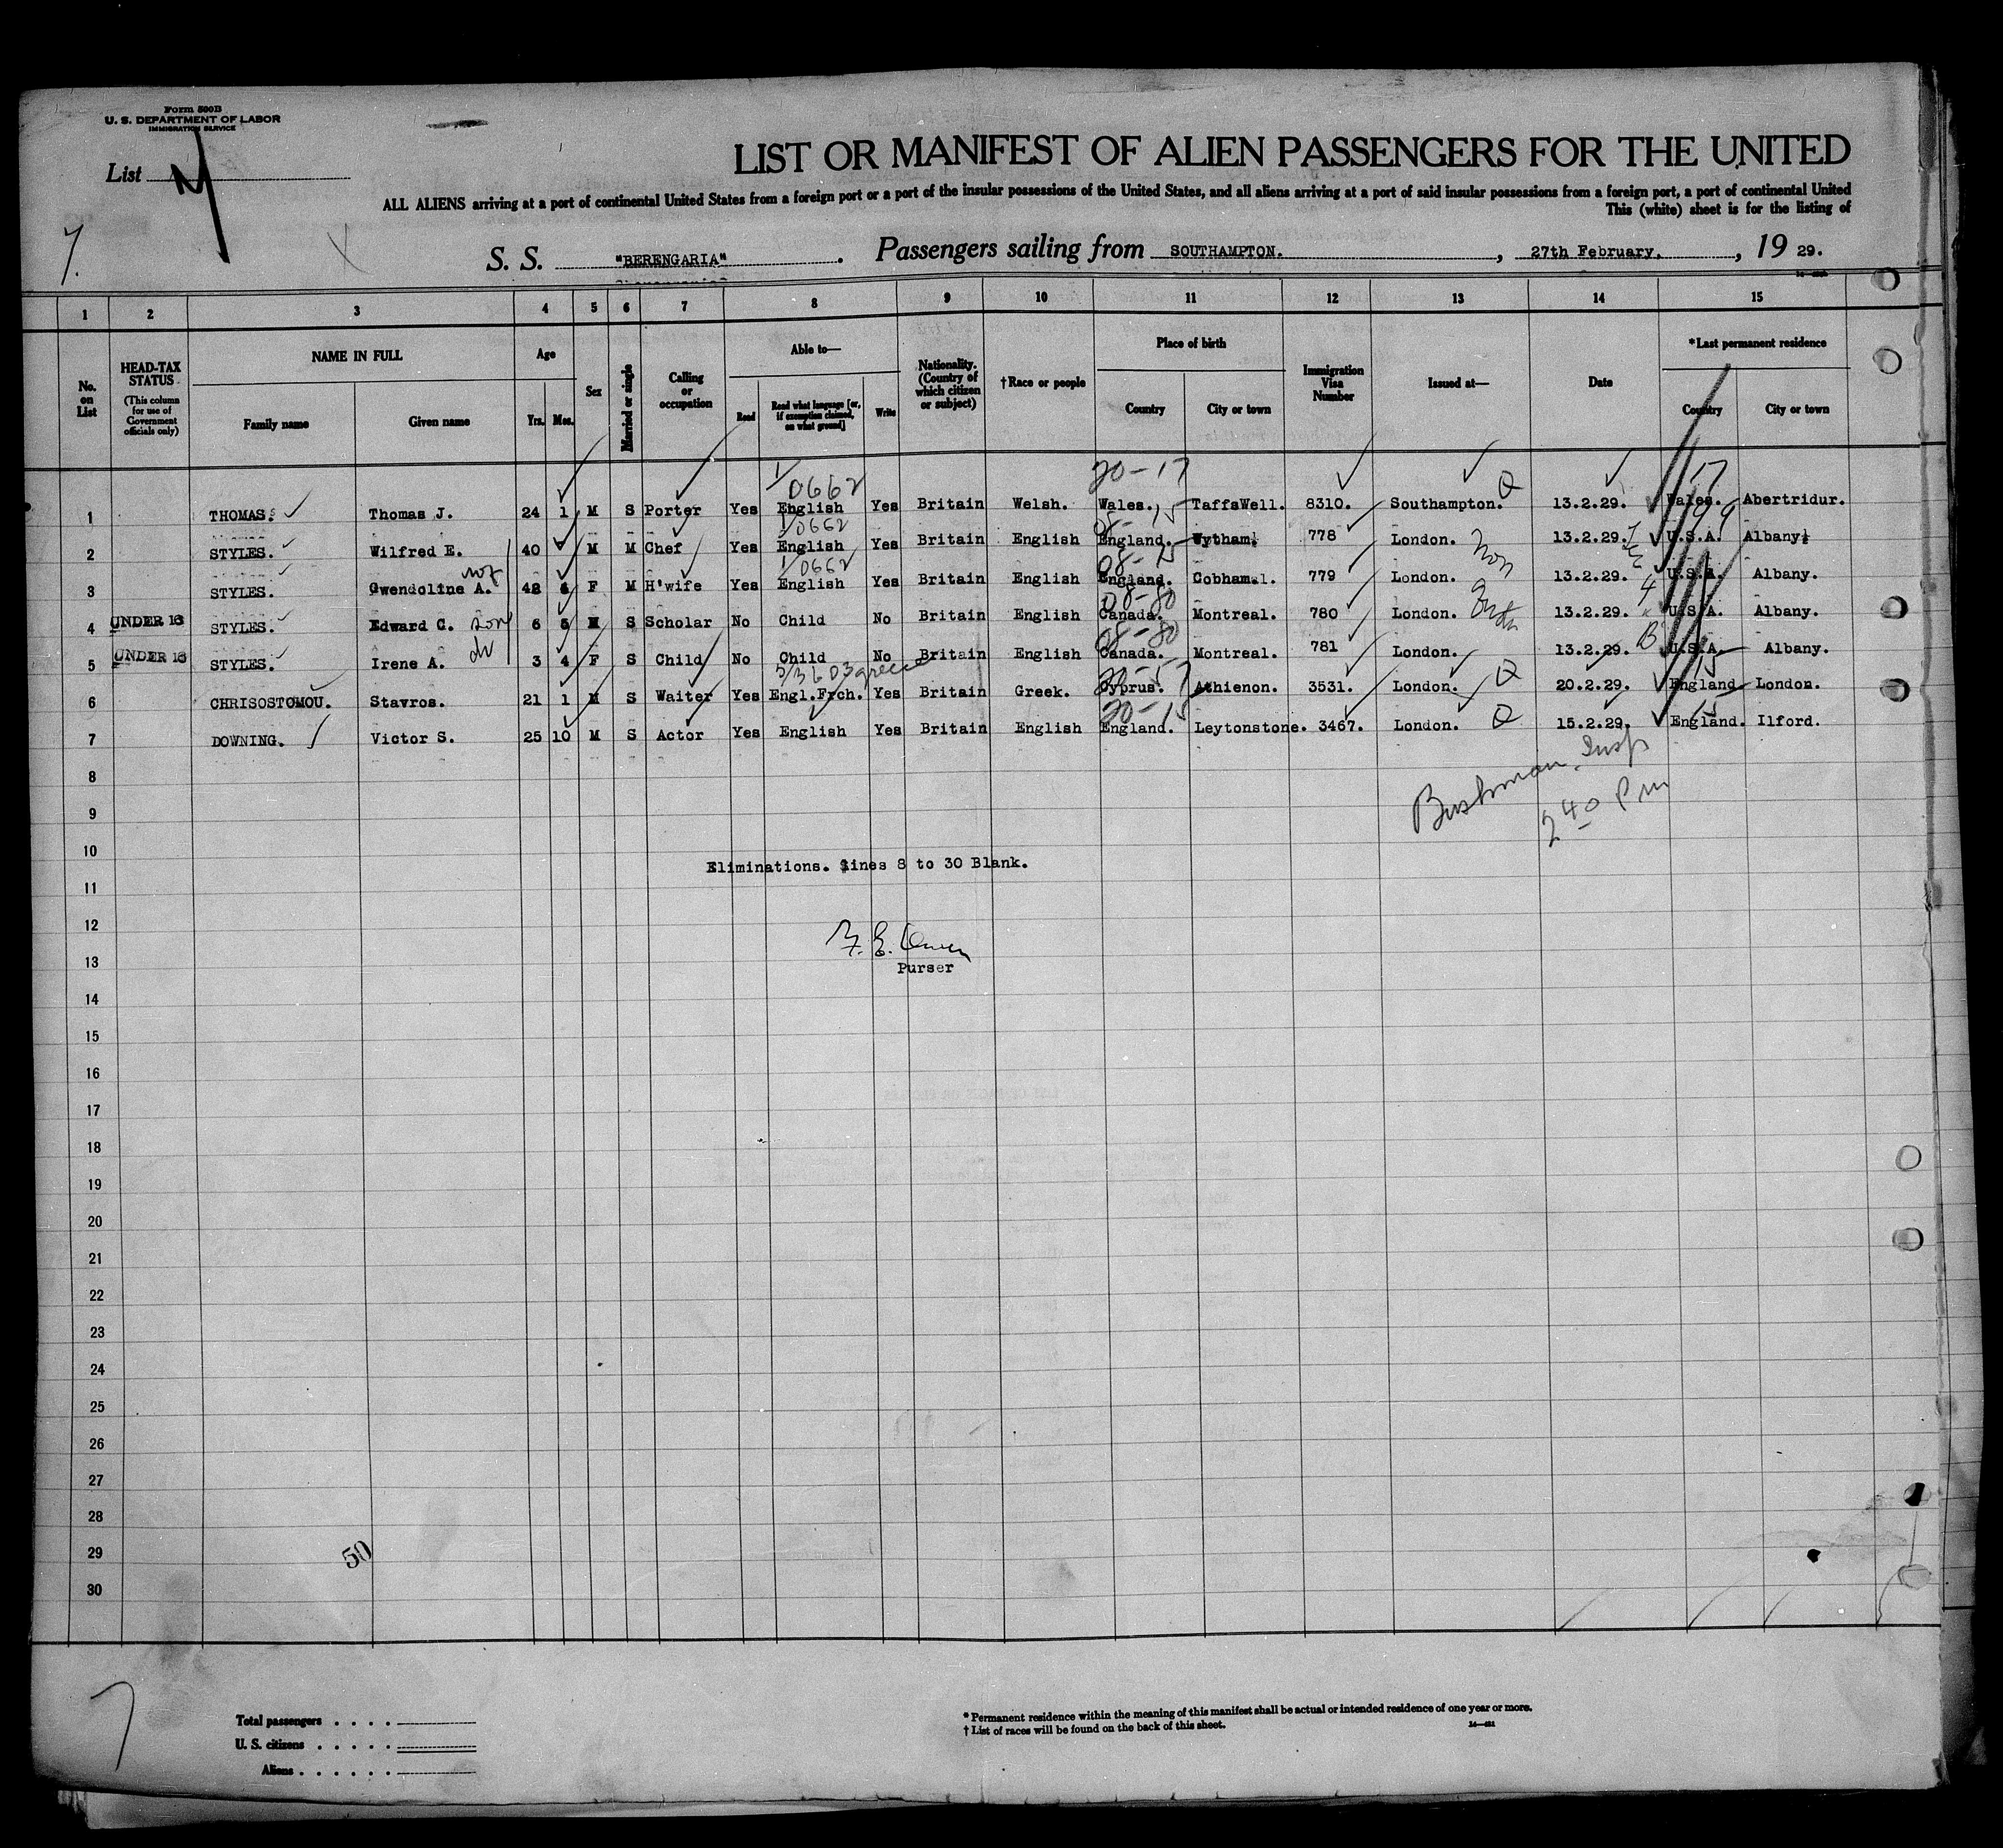 Form 500B
U. S. DEPARTMENT OF LABOR
IMMIGRATION SERVICE
List
7.
LIST OR MANIFEST OF ALIEN PASSENGERS FOR THE UNITED
ALL ALIENS arriving at a port of continental United States from a foreign port or a port of the insular possessions of the United States, and all aliens arriving at a port of said insular possessions from a foreign port, a port of continental United
This (white) sheet is for the listing of
S. S. "BERENGARIA". Passengers sailing from SOUTHAMPTON. , 27th February. , 19 29.
1 2 3 4 5 6 7 8 9 10 11 12 13 14 15
No. on List
HEAD-TAX STATUS (This column for use of Government officials only)
NAME IN FULL
Family name
Given name
Age
Yrs. Mos.
Sex
Married or single
Calling or occupation
Able to—
Read
Read what language [or, if exemption claimed, on what ground]
Write
Nationality. (Country of which citizen or subject)
†Race or people
Place of birth
Country
City or town
Immigration Visa Number
Issued at—
Date
*Last permanent residence
Country
City or town
20-17 17
0662
1 THOMAS. Thomas J. 24 1 M S Porter Yes English Yes Britain Welsh. Wales. TaffsWell. 8310. Southampton. 13.2.29. Wales. Abertridur.
0662
2 STYLES. Wilfred E. 40 M M Chef Yes English Yes Britain English England. Wytham. 778 London. 13.2.29. U.S.A. Albany.
0662
3 STYLES. Gwendoline A. 42 F M H'wife Yes English Yes Britain English England. Cobham. 779 London. 13.2.29. U.S.A. Albany.
08-80
4 UNDER 16 STYLES. Edward C. 6 5 M S Scholar No Child No Britain English Canada. Montreal. 780 London. 13.2.29. U.S.A. Albany.
08-80
5 UNDER 16 STYLES. Irene A. 3 4 F S Child No Child No Britain English Canada. Montreal. 781 London. 13.2.29. U.S.A. Albany.
6 CHRISOSTOMOU. Stavros. 21 1 M S Waiter Yes Engl.Frch. Yes Britain Greek. Cyprus. Athienon. 3531. London. 20.2.29. England London.
20-15 15
7 DOWNING. Victor S. 25 10 M S Actor Yes English Yes Britain English England. Leytonstone. 3467. London. 15.2.29. England. Ilford.
8
Bushman, Insp
9
2 40 Pm
10
Eliminations. Lines 8 to 30 Blank.
11
12
13
Purser
14
15
16
17
18
19
20
21
22
23
24
25
26
27
28
29
50
30
7
Total passengers
U. S. citizens
Aliens
* Permanent residence within the meaning of this manifest shall be actual or intended residence of one year or more.
† List of races will be found on the back of this sheet.